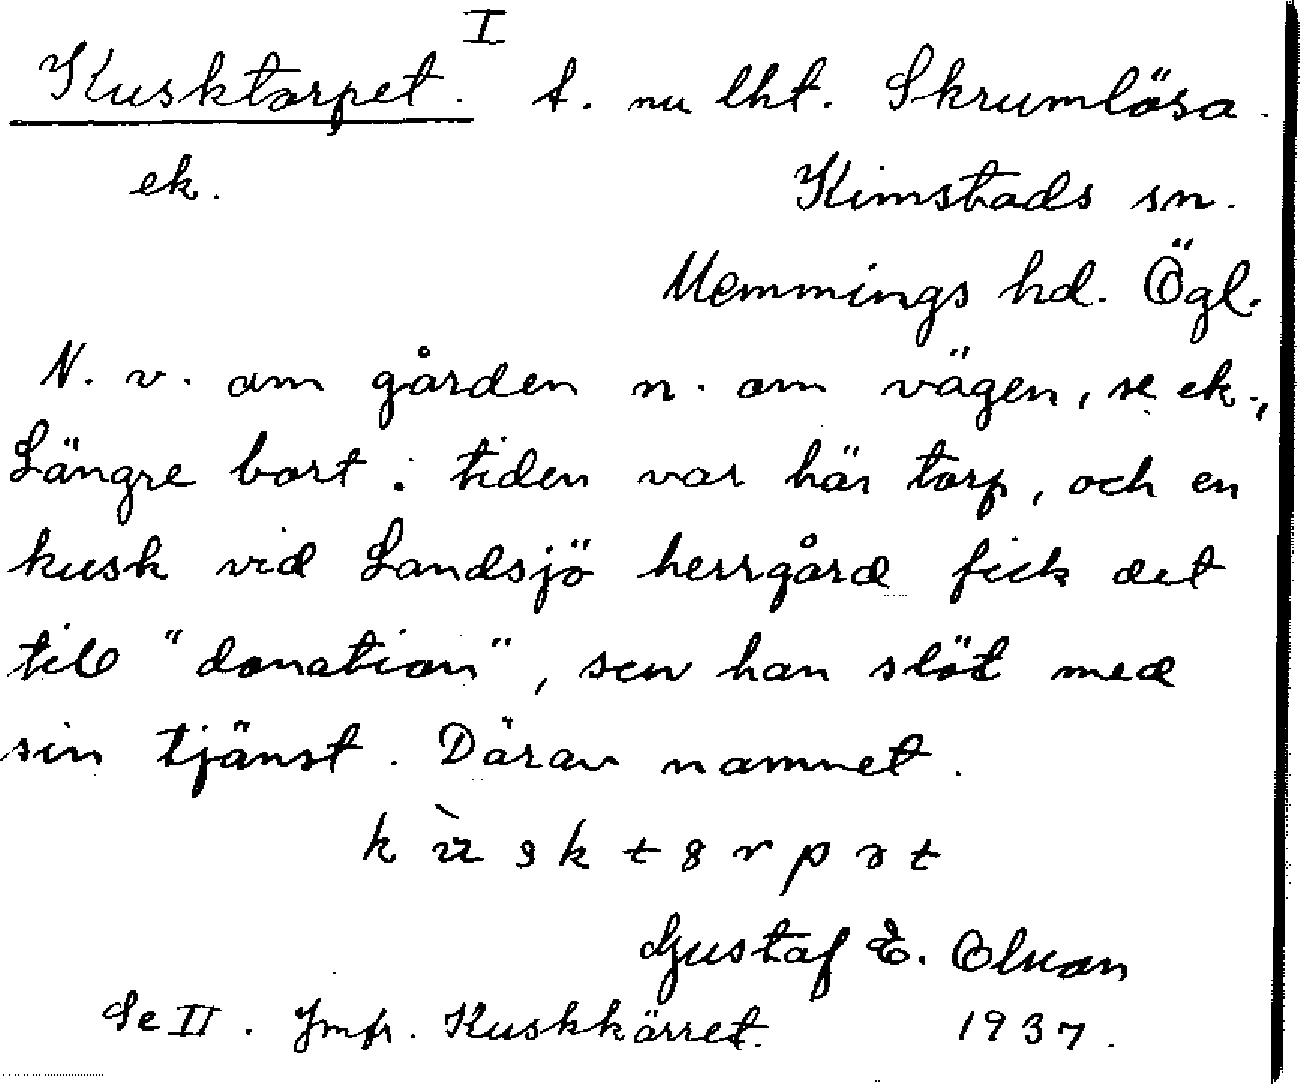 Kusktorpet. I t. nu lht. Skrumlösa.
ek. Kimstads sn.
Memmings hd. Ögl.
N. v. om gården n. om vägen, se ek.,
Längre bort i tiden var här torp, och en
kusk vid Landsjö herrgård fick det
till "donation", sen han slöt med
sin tjänst. Därav namnet.
Gustaf E. Olson
Se II. Jmfr. Kuskkärret. 1937.